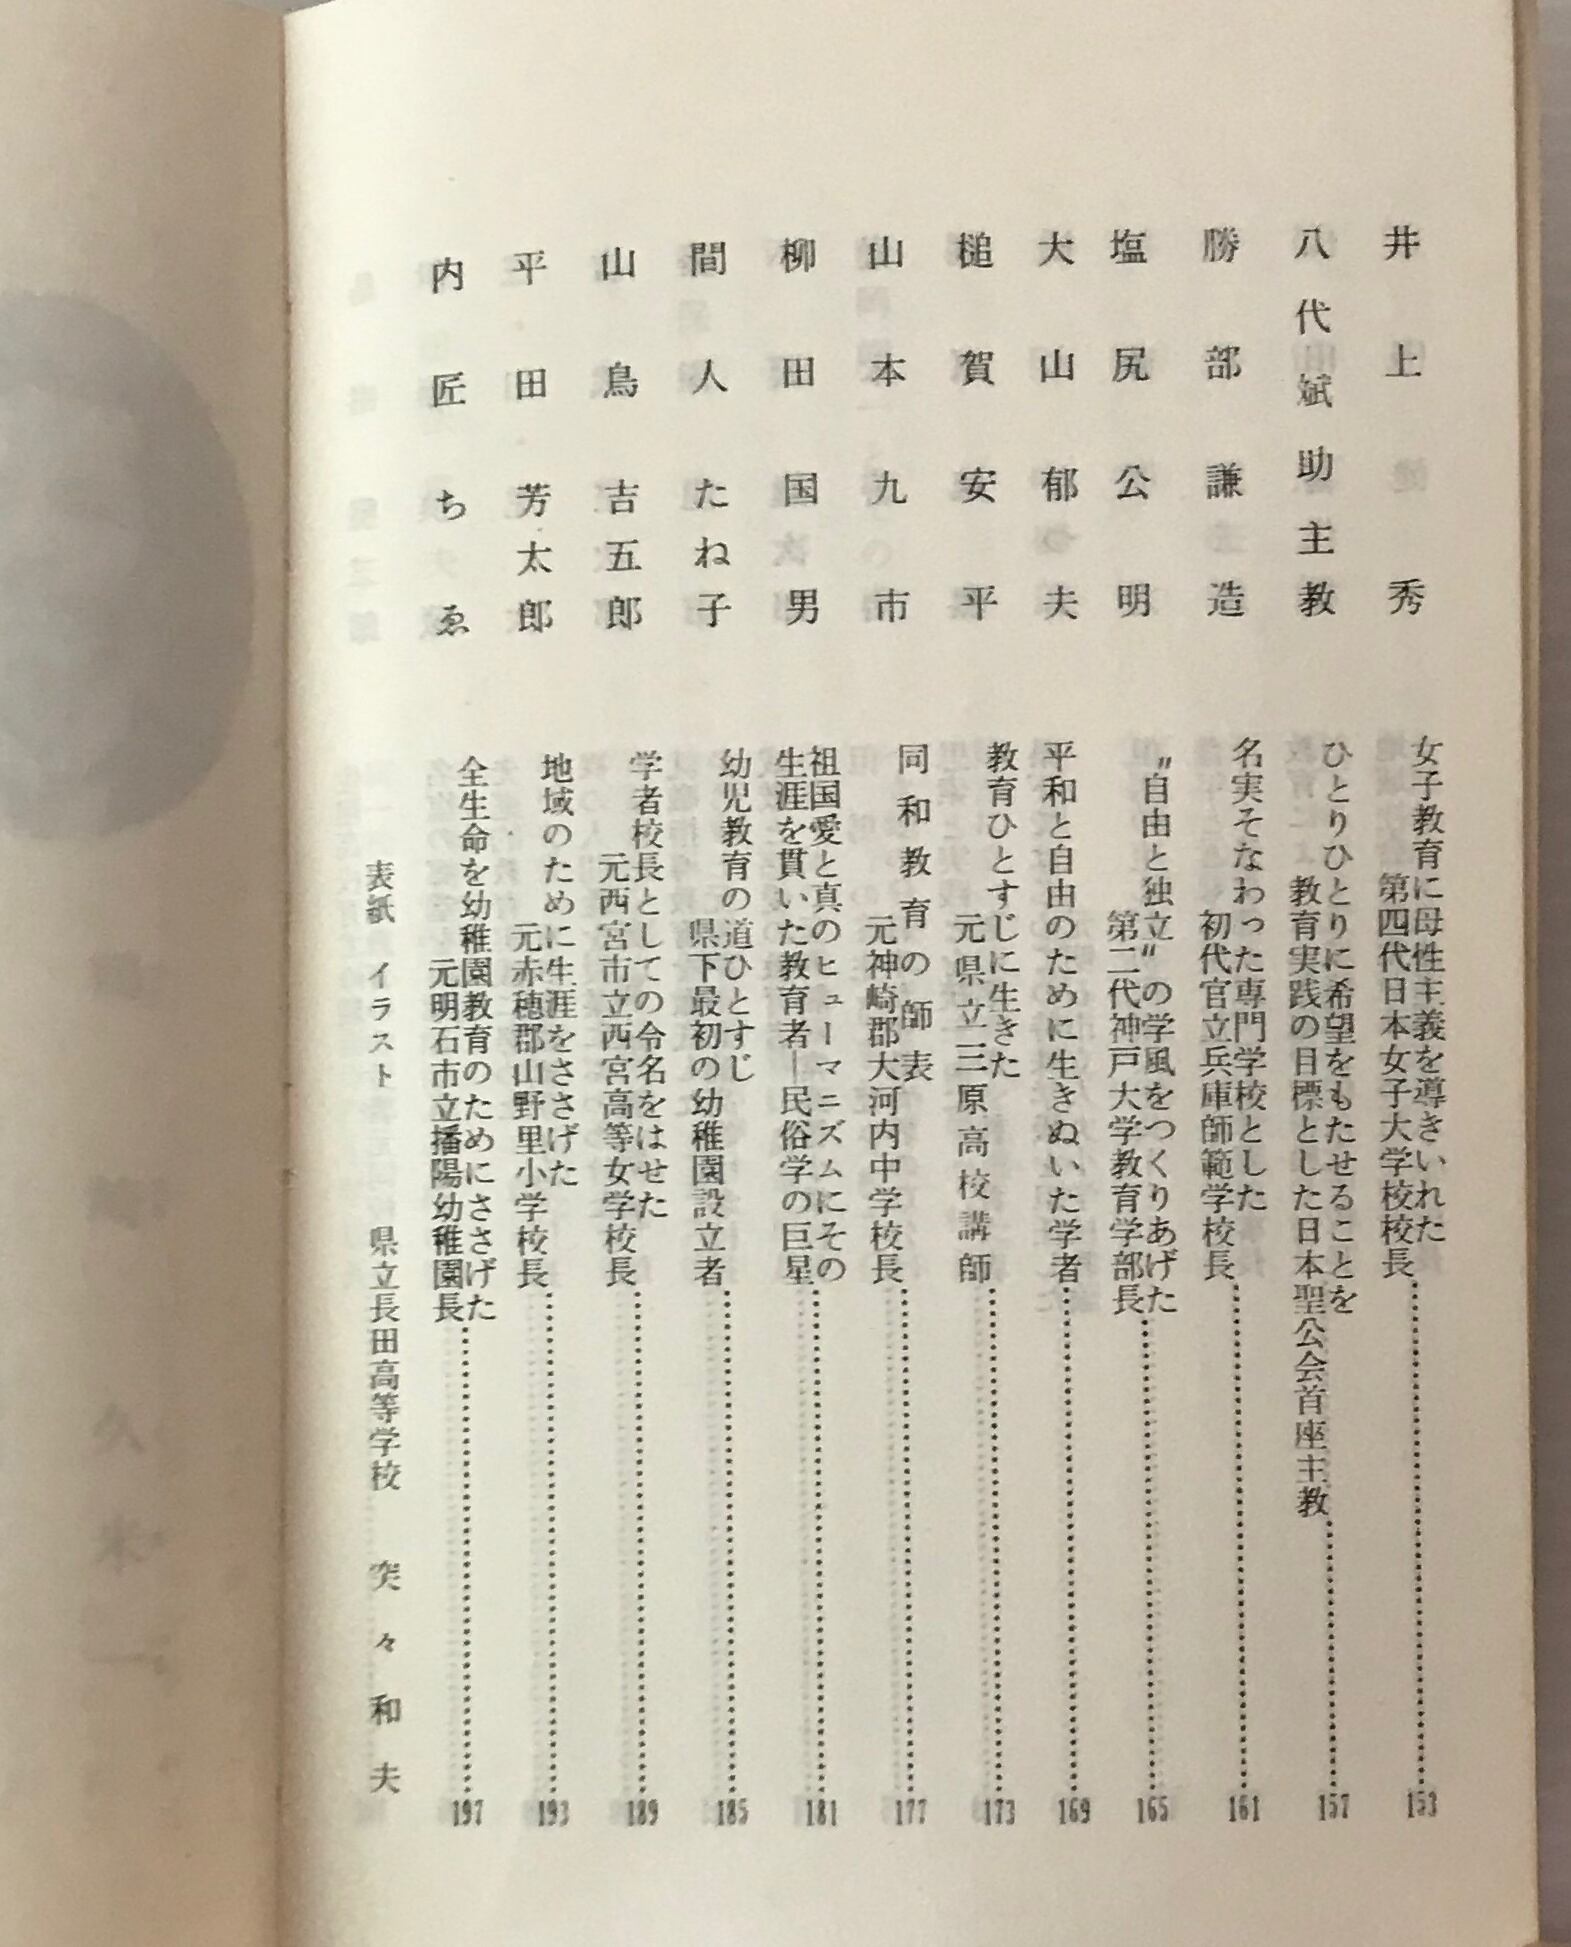 井上秀
女子教育に母性主義を導きいれた
第四代日本女子大学校校長……153
八代斌助主教
ひとりひとりに希望をもたせることを
教育実践の目標とした日本聖公会首座主教……157
勝部謙造
名実そなわった専門学校とした
初代官立兵庫師範学校長……161
塩尻公明
〃自由と独立〃の学風をつくりあげた
第二代神戸大学教育学部長……165
大山郁夫
平和と自由のために生きぬいた学者……169
槌賀安平
教育ひとすじに生きた
元県立三原高校講師……173
山本九市
同和教育の師表
元神崎郡大河内中学校長……177
柳田国男
祖国愛と真のヒューマニズムにその
生涯を貫いた教育者―民俗学の巨星……181
間人たね子
幼児教育の道ひとすじ
県下最初の幼稚園設立者……185
山鳥吉五郎
学者校長としての令名をはせた
元西宮市立西宮高等女学校長……189
平田芳太郎
地域のために生涯をささげた
元赤穂郡山野里小学校長……193
内匠ちゑ
全生命を幼稚園教育のためにささげた
元明石市立播陽幼稚園長……197
表紙 イラスト 県立長田高等学校 突々和夫